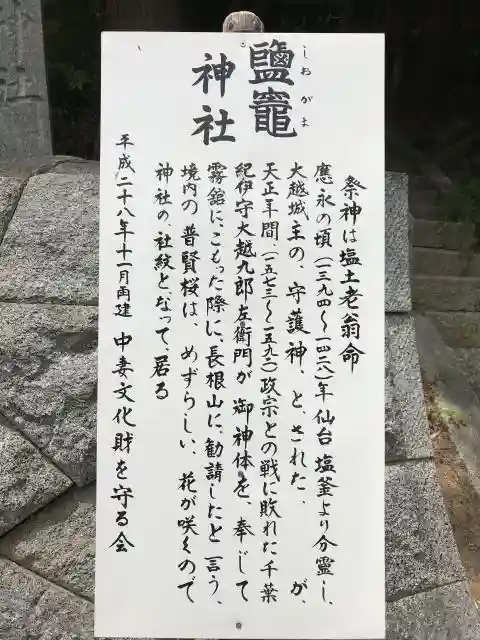 しおがま
鹽竈
神社
祭神は塩土老翁命
應永の頃(一三九四〜一四二八)年仙台塩釜より分霊し、
大越城主の、守護神、と、された、が、
天正年間、(一五七三〜一五九二)政宗との戦に敗れた千葉
紀伊守大越九郎左衛門が御神体を、奉じて
霧舘に、こもった際に、長根山に、勧請したと言う、
境内の普賢桜は、めずらしい、花が咲くので
神社の、社紋となって、居る
平成二十八年十一月再建 中妻文化財を守る会